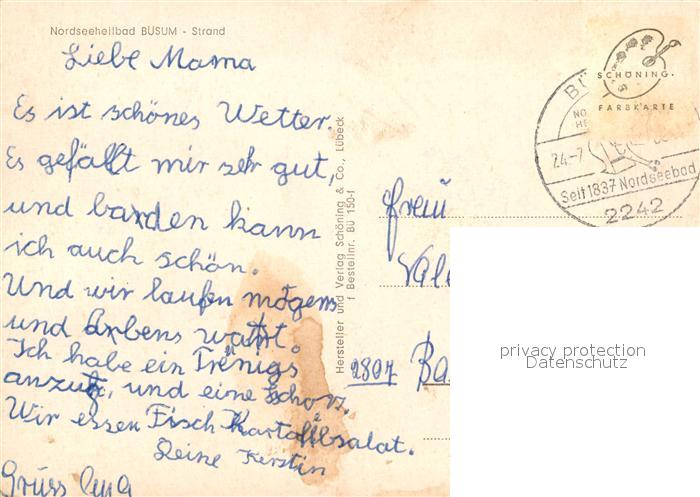 Nordseeheilbad BÜSUM - Strand
Liebe Mama
Es ist schönes Wetter.
Es gefällt mir sehr gut,
und barden kann
ich auch schön.
Und wir laufen mogens
und arbens watt.
Ich habe ein Trenigs
anzug, und eine Schorz.
Wir essen Fisch Kartoffelsalat.
Deine Kerstin
Gruss
Hersteller und Verlag Schöning & Co., Lübeck
f Bestellnr. BÜ 150-f
SCHÖNING
FARBKARTE
BÜ
NO
HE
24.-7
Seit 1837 Nordseebad
2242
Frau
Vale
2807 Ba
privacy protection
Datenschutz